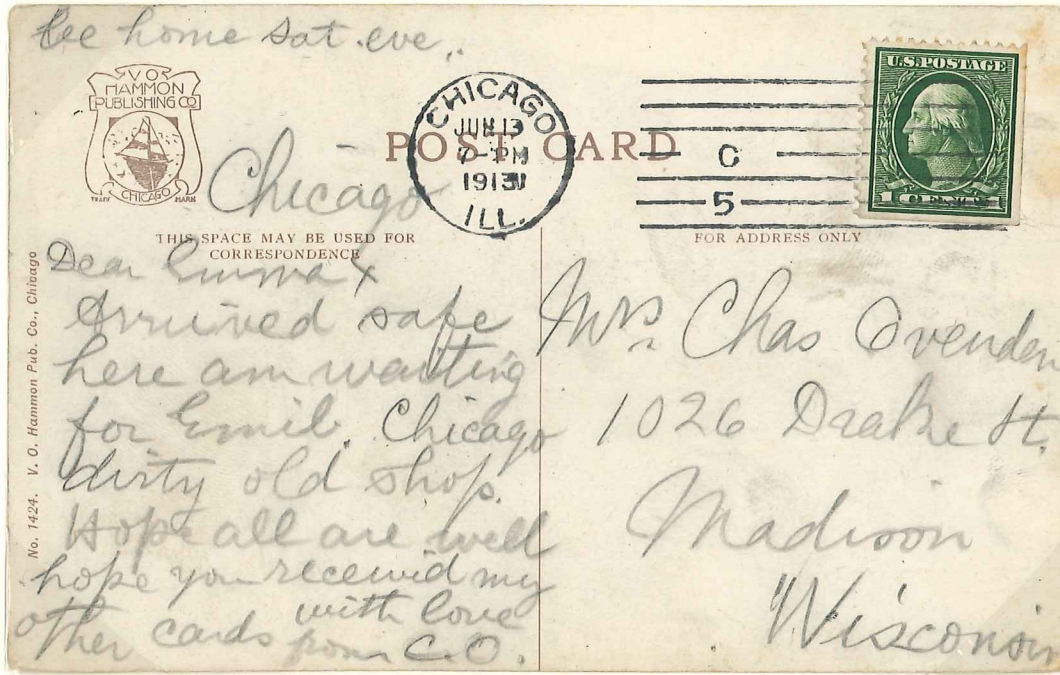 Bee home sat. eve..
V O
HAMMON
PUBLISHING CO
CHICAGO
TRADE MARK
POST CARD
CHICAGO
JUN 13
7-PM
1913
ILL.
C
5
U.S. POSTAGE
1 CENT 1
Chicago
THIS SPACE MAY BE USED FOR
CORRESPONDENCE
FOR ADDRESS ONLY
No. 1424. V. O. Hammon Pub. Co., Chicago
Dear Emma
Arrived safe
here am waiting
for Emil. Chicago
dirty old shop.
Hope all are well
hope you received my
other cards with love
from C.O.
Mrs. Chas Ovenden
1026 Drake St.
Madison
Wisconsin